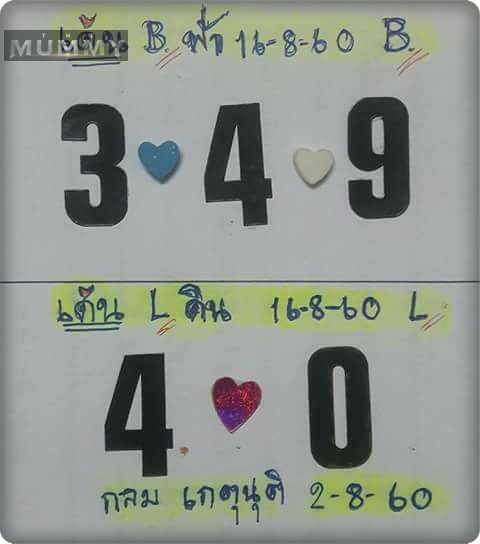 MUMMY
เด้น B. ฟ้า 16-8-60 B.
3 4 9
เต้น L ดิน 16-8-60 L
4 0
กลม เกตุนุติ 2-8-60